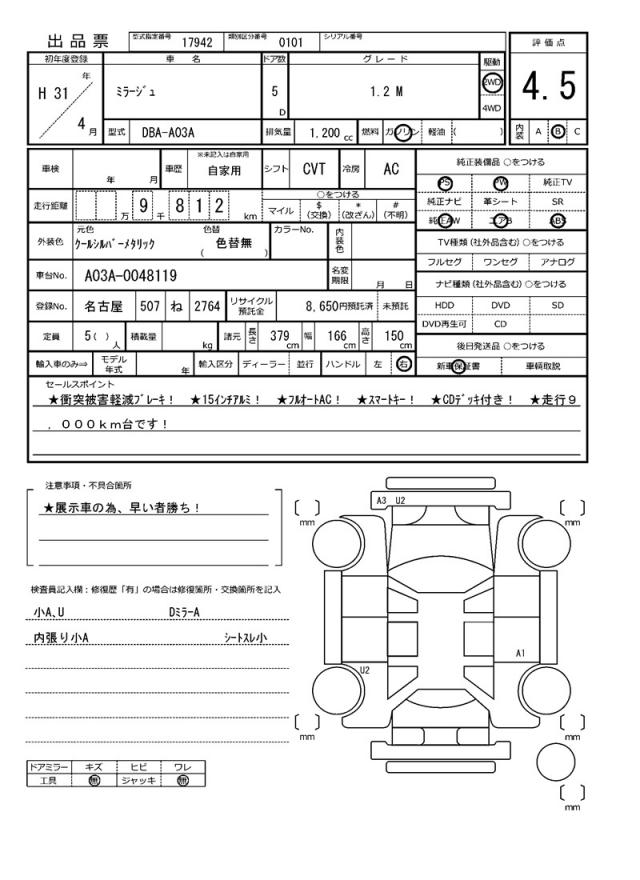 出品票 型式指定番号 17942 類別区分番号 0101 シリアル番号
評価点
4.5
内装 A B C
初年度登録 車名 ドア数 グレード 駆動
H 31 年 4 月 ミラージュ 5 D 1.2 M 2WD 4WD
型式 DBA-A03A 排気量 1.200 cc 燃料 ガソリン 軽油 ( )
車検 年 月 車歴 ※未記入は自家用 自家用 シフト CVT 冷房 AC
純正装備品 ○をつける
PS PW 純正TV
純正ナビ 革シート SR
純正AW エアB ABS
走行距離 万 9 千 8 1 2 km
○をつける
マイル $ (交換) * (改ざん) # (不明)
外装色 元色 クールシルバーメタリック 色替 ( 色替無 ) カラーNo. 内装色
TV種類 (社外品含む) ○をつける
フルセグ ワンセグ アナログ
車台No. A03A-0048119 名変期限 月 日
ナビ種類 (社外品含む) ○をつける
登録No. 名古屋 507 ね 2764 リサイクル預託金 8,650円預託済 未預託
HDD DVD SD
DVD再生可 CD
定員 5( ) 人 積載量 kg 諸元 長さ 379 cm 幅 166 cm 高さ 150 cm
後日発送品 ○をつける
輸入車のみ⇒ モデル年式 年 輸入区分 ディーラー 並行 ハンドル 左 右
新車保証書 車輌取説
セールスポイント
★衝突被害軽減ブレーキ! ★15インチアルミ! ★フルオートAC! ★スマートキー! ★CDデッキ付き! ★走行9
.000km台です!
注意事項・不具合箇所
★展示車の為、早い者勝ち!
検査員記入欄:修復歴「有」の場合は修復箇所・交換箇所を記入
小A、U Dミラー A
内張り小A シートスレ小
ドアミラー キズ ヒビ ワレ
工具 無 ジャッキ 無
A3 U2
mm
mm
A1
U2
mm
mm
mm